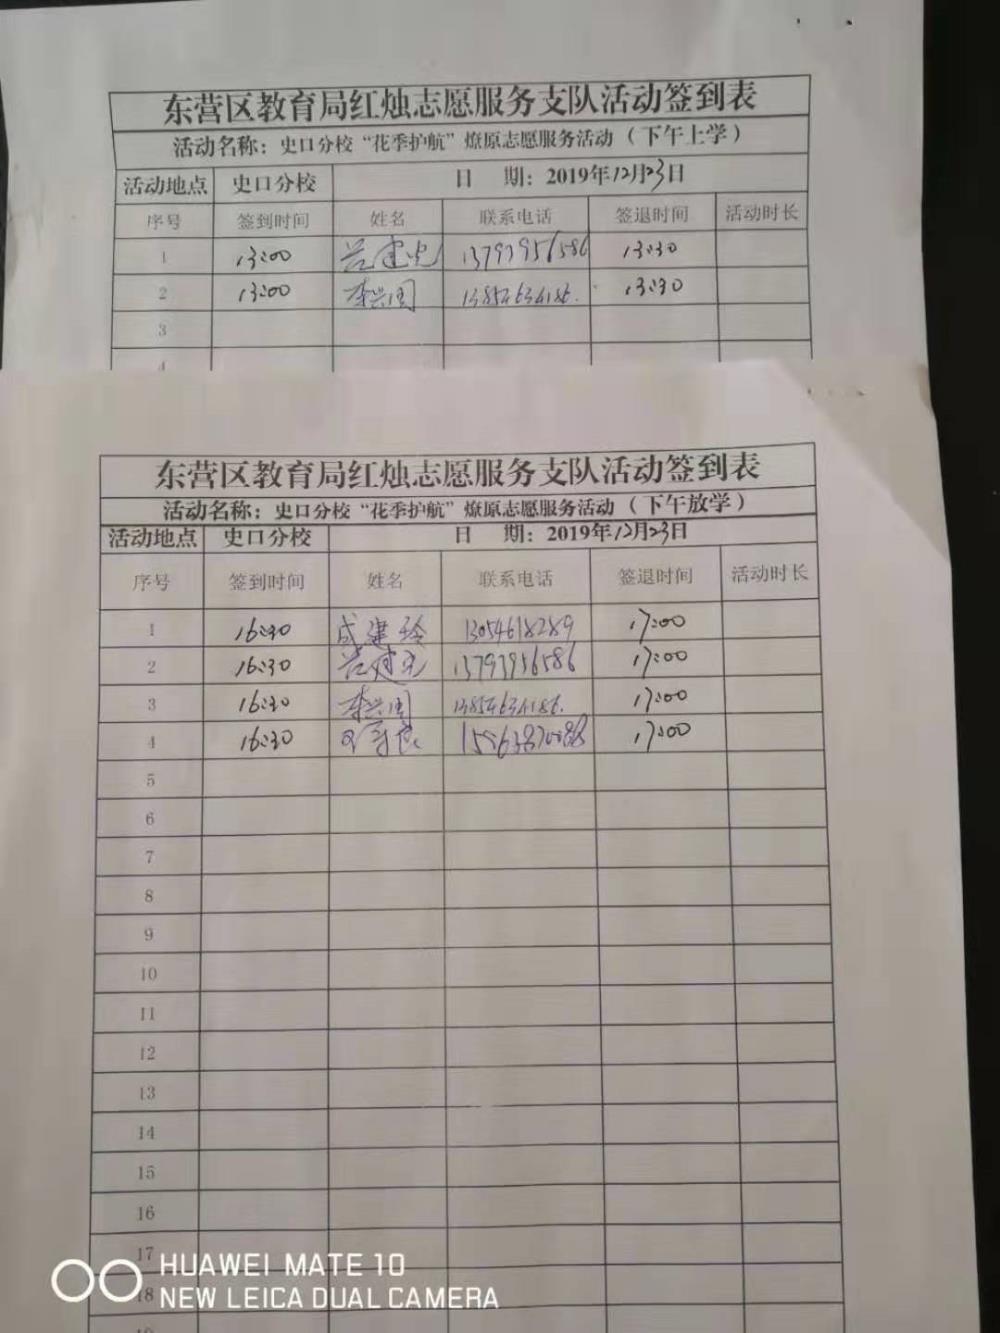 东营区教育局红烛志愿服务支队活动签到表
活动名称：史口分校“花季护航”燎原志愿服务活动（下午上学）
活动地点 史口分校 日 期：2019年12月23日
序号 签到时间 姓名 联系电话 签退时间 活动时长
1 13:00 13793956586 13:30
2 13:00 李兴国 13854634186. 13:30
3
4
东营区教育局红烛志愿服务支队活动签到表
活动名称：史口分校“花季护航”燎原志愿服务活动（下午放学）
活动地点 史口分校 日 期：2019年12月23日
序号 签到时间 姓名 联系电话 签退时间 活动时长
1 16:30 成建玲 13054618289 17:00
2 16:30 13793956586 17:00
3 16:30 李兴国 13854634186. 17:00
4 16:30 17:00
5
6
7
8
9
10
11
12
13
14
15
16
17
18
19
HUAWEI MATE 10
NEW LEICA DUAL CAMERA